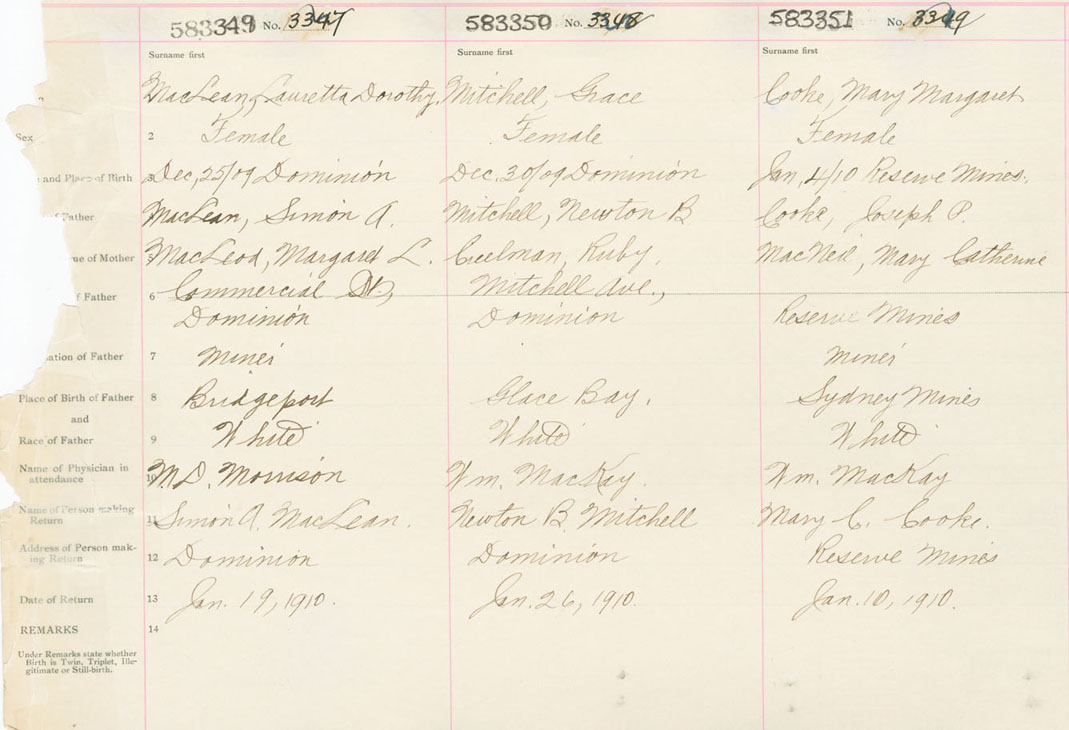 583349 No. 3347 583350 No. 3348 583351 No. 3349
Surname first Surname first Surname first
MacLean, Lauretta Dorothy. Mitchell, Grace Cooke, Mary Margaret
Sex 2 Female Female Female
and Place of Birth 3 Dec, 25/09 Dominion Dec. 30/09 Dominion Jan, 4/10 Reserve Mines.
of Father MacLean, Simon A. Mitchell, Newton B. Cooke, Joseph P.
of Mother 5 MacLeod, Margaret L. Creelman, Ruby. MacNeil, Mary Catherine
of Father 6 Commercial St, Mitchell Ave.,
Dominion Dominion Reserve Mines
ation of Father 7 Miner Miner
Place of Birth of Father 8 Bridgeport Glace Bay. Sydney Mines
and
Race of Father 9 White White White
Name of Physician in
attendance 10 M.D. Morrison Wm. MacKay. Wm. MacKay
Name of Person making
Return 11 Simon A. MacLean. Newton B. Mitchell Mary C. Cooke.
Address of Person mak-
ing Return 12 Dominion Dominion Reserve Mines
Date of Return 13 Jan. 19, 1910. Jan. 26, 1910. Jan. 10, 1910.
REMARKS 14
Under Remarks state whether
Birth is Twin, Triplet, Ille-
gitimate or Still-birth.